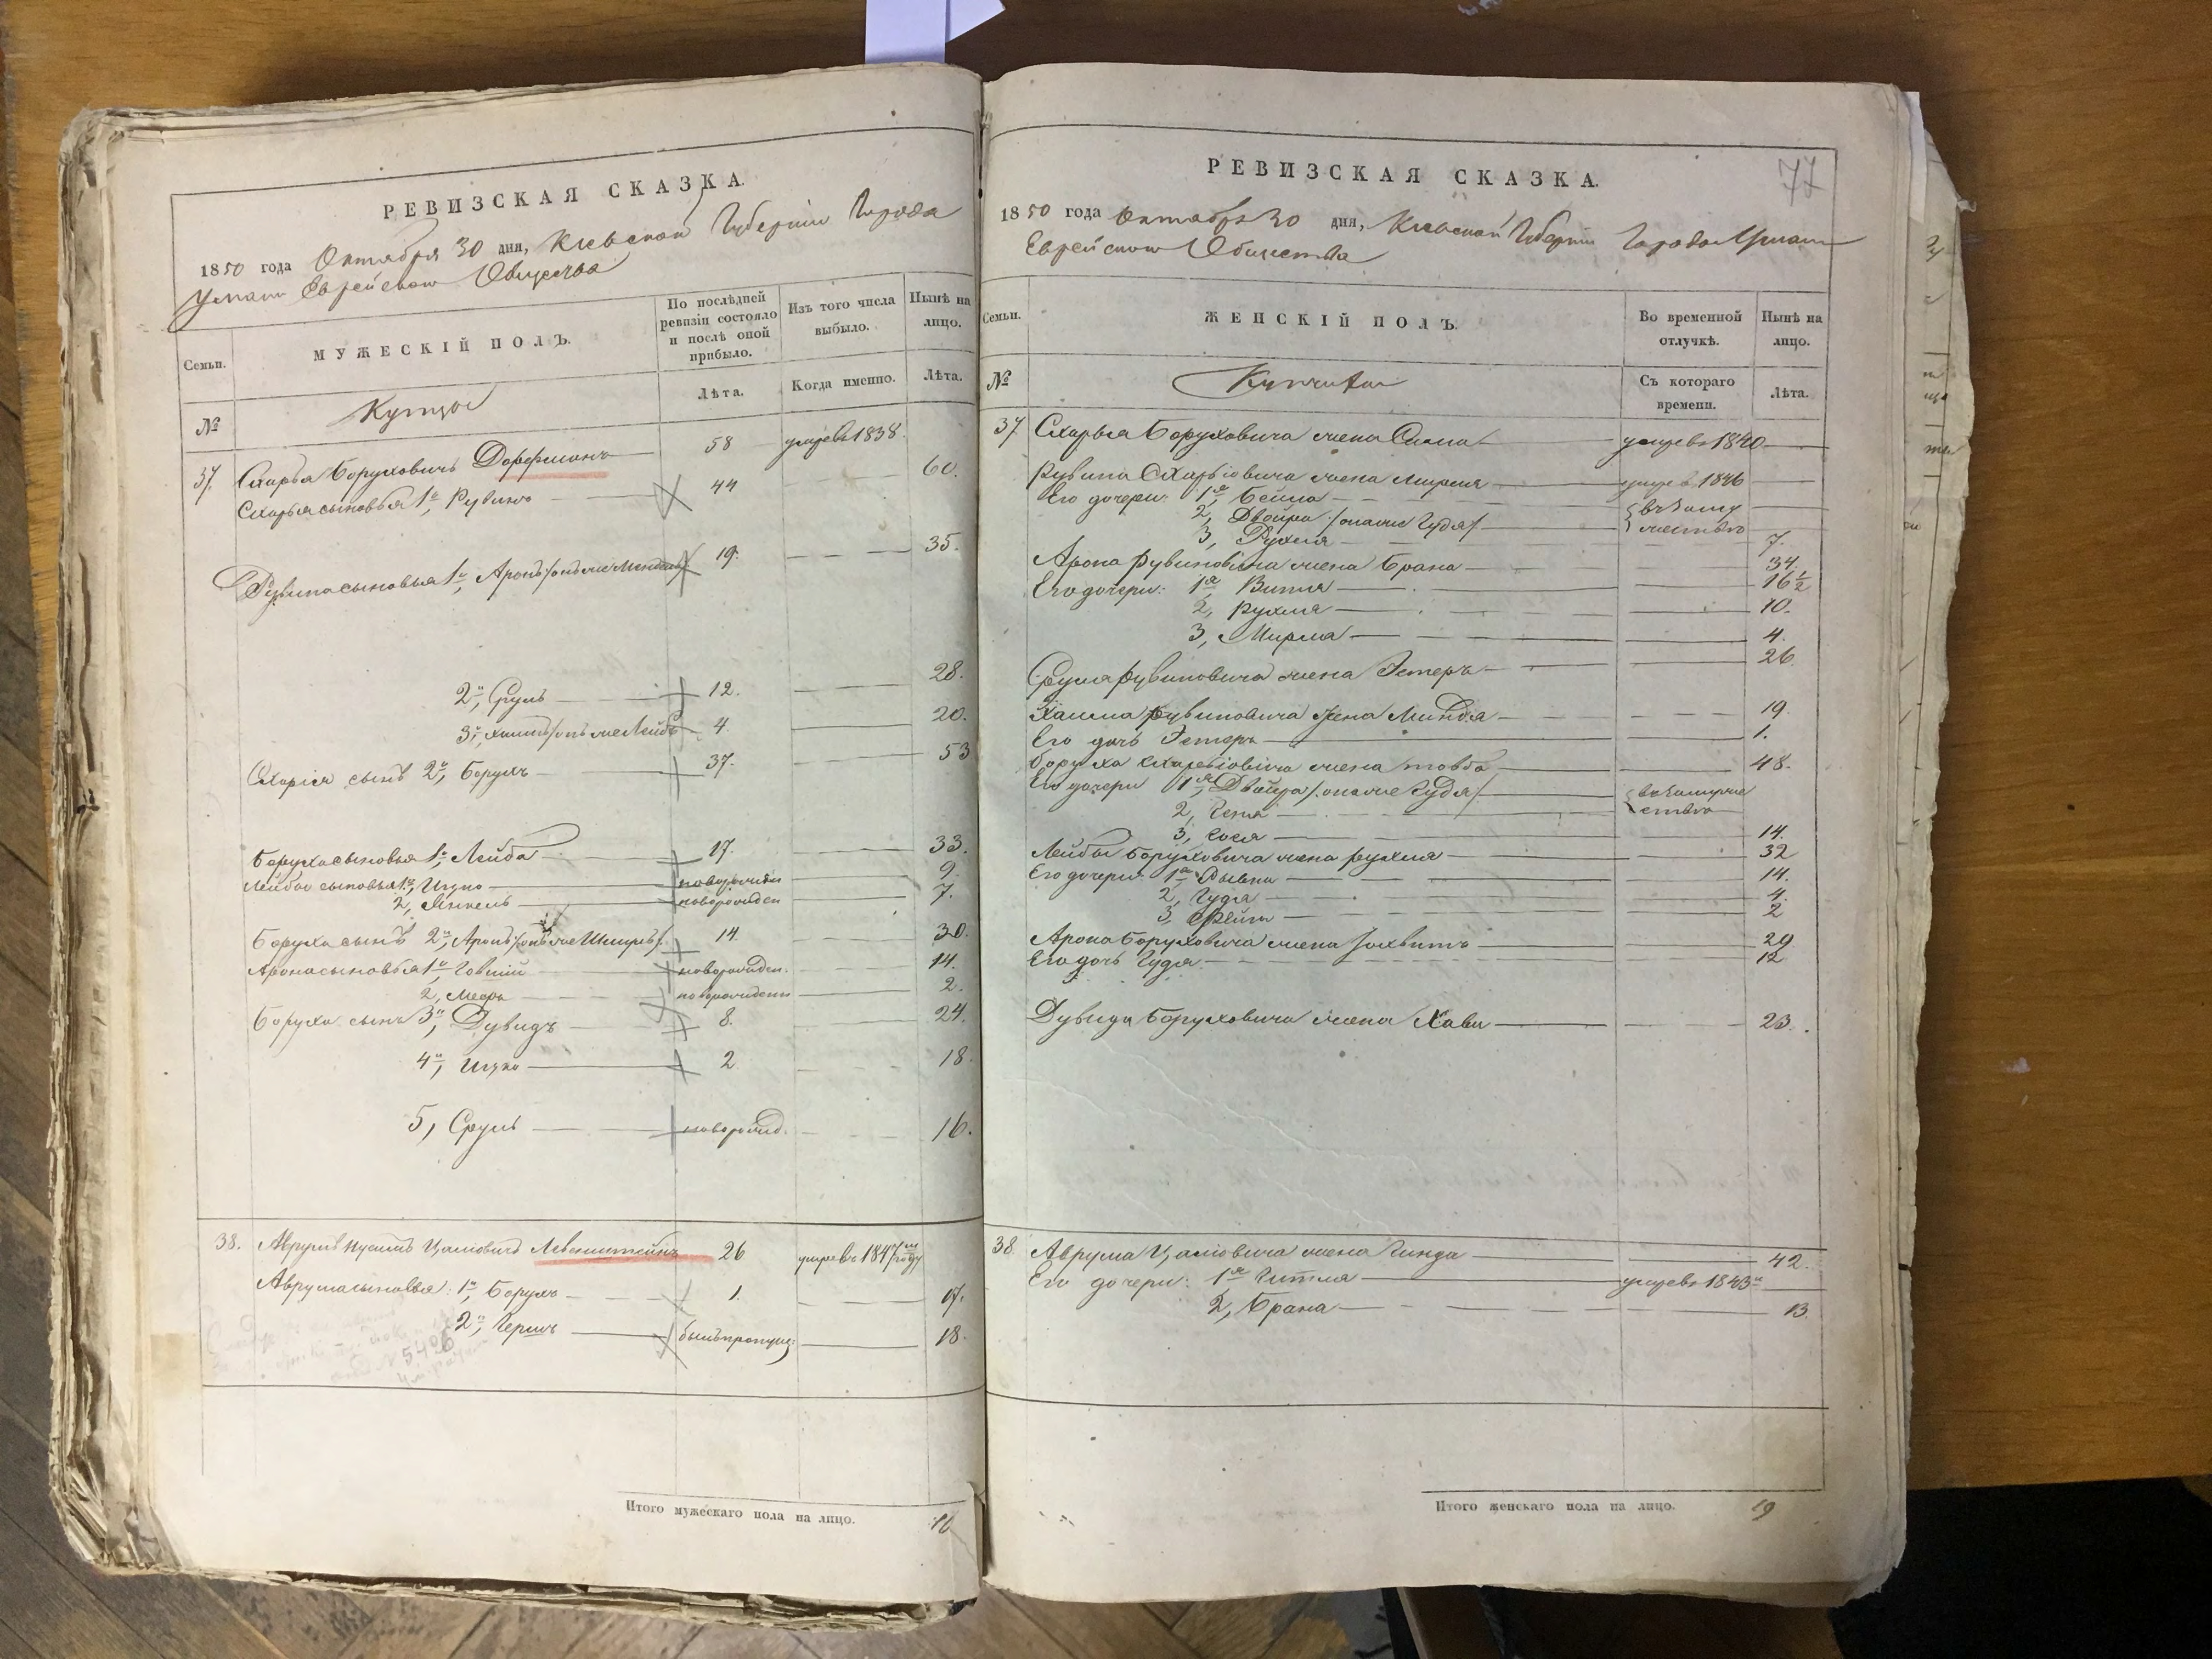 РЕВИЗСКАЯ СКАЗКА.
1850 года Октября 30 дня, Киевской Губерніи Города
Умани Еврейскаго Общества
Семьи.
МУЖЕСКІЙ ПОЛЪ.
По послѣдней ревизіи состояло и послѣ оной прибыло.
Изъ того числа выбыло.
Нынѣ на лицо.
№
Лѣта.
Когда именно.
Лѣта.
Купцы
37. Схарья Боруховичъ Дорфманъ 58 умре въ 1838.
Схарья сыновья 1й, Рувинъ 44 60.
Рувина сыновья 1й, Аронъ /онъ же Мендель/ 19. 35.
2й, Сруль 12. 28.
3й, Хаимъ /онъ же Лейбъ 4. 20.
Схарія сынъ 2й, Борухъ 37. 53
Боруха сыновья 1й, Лейба 17. 33.
Лейбы сыновья 1й, Ицко новорожден 9.
2, Янкель новорожден 7.
Боруха сынъ 2й, Аронъ /онъ же 14. 30.
Арона сыновья 1й новорожден. 14.
2, Мееръ новорожденн 2.
Боруха сынъ 3й, Дувидъ 8. 24.
4й, Ицко 2 18.
5, Сруль новорожд. 16.
38. Аврумъ Нусимъ Левенштейнъ 26 умре въ 1847м году
Аврума сыновья: 1й, Борухъ 1. 17.
2й, Гершъ былъ пропущ: 18.
№ 5496
Итого мужескаго пола на лицо. 16
77
РЕВИЗСКАЯ СКАЗКА.
1850 года Октября 30 дня, Киевской Губерніи Города Умани
Еврейскаго Общества
Семьи.
ЖЕНСКІЙ ПОЛЪ.
Во временной отлучкѣ.
Нынѣ на лицо.
№
Съ котораго времени.
Лѣта.
37. Схарья Боруховича жена Сима умре въ 1840
Рувина Схарьіовича жена Мирля умре въ 1846
Его дочери: 1я, Бейла въ заму
2, Двойра /она же Гудя/ жествѣ
3, Рухля 7.
Арона Рувиновича жена Брана 34.
Его дочери: 1я, Витя 16½
2, Рухля 10.
3, Мирля 4.
Сруля Рувиновича жена Эстеръ 26.
Хаима Рувиновича жена Миндля 19.
Его дочь Эстеръ 1.
Боруха Схарьіовича жена Товба 48.
Его дочери 1я, Двойра /она же Гудя/ въ замуже
2, Геня ствѣ
3, Хося 14.
Лейбы Боруховича жена Рухля 32
Его дочери: 1я, Рывка 14.
2, Гудя 4.
3, Фейга 2
Арона Боруховича жена 29
Его дочь Гудя 12
Дувида Боруховича жена Хава 23.
38. Аврума жена Гинда 42.
Его дочери: 1я Гитля умре въ 1843м
2, Брана 13.
Итого женскаго пола на лицо. 19